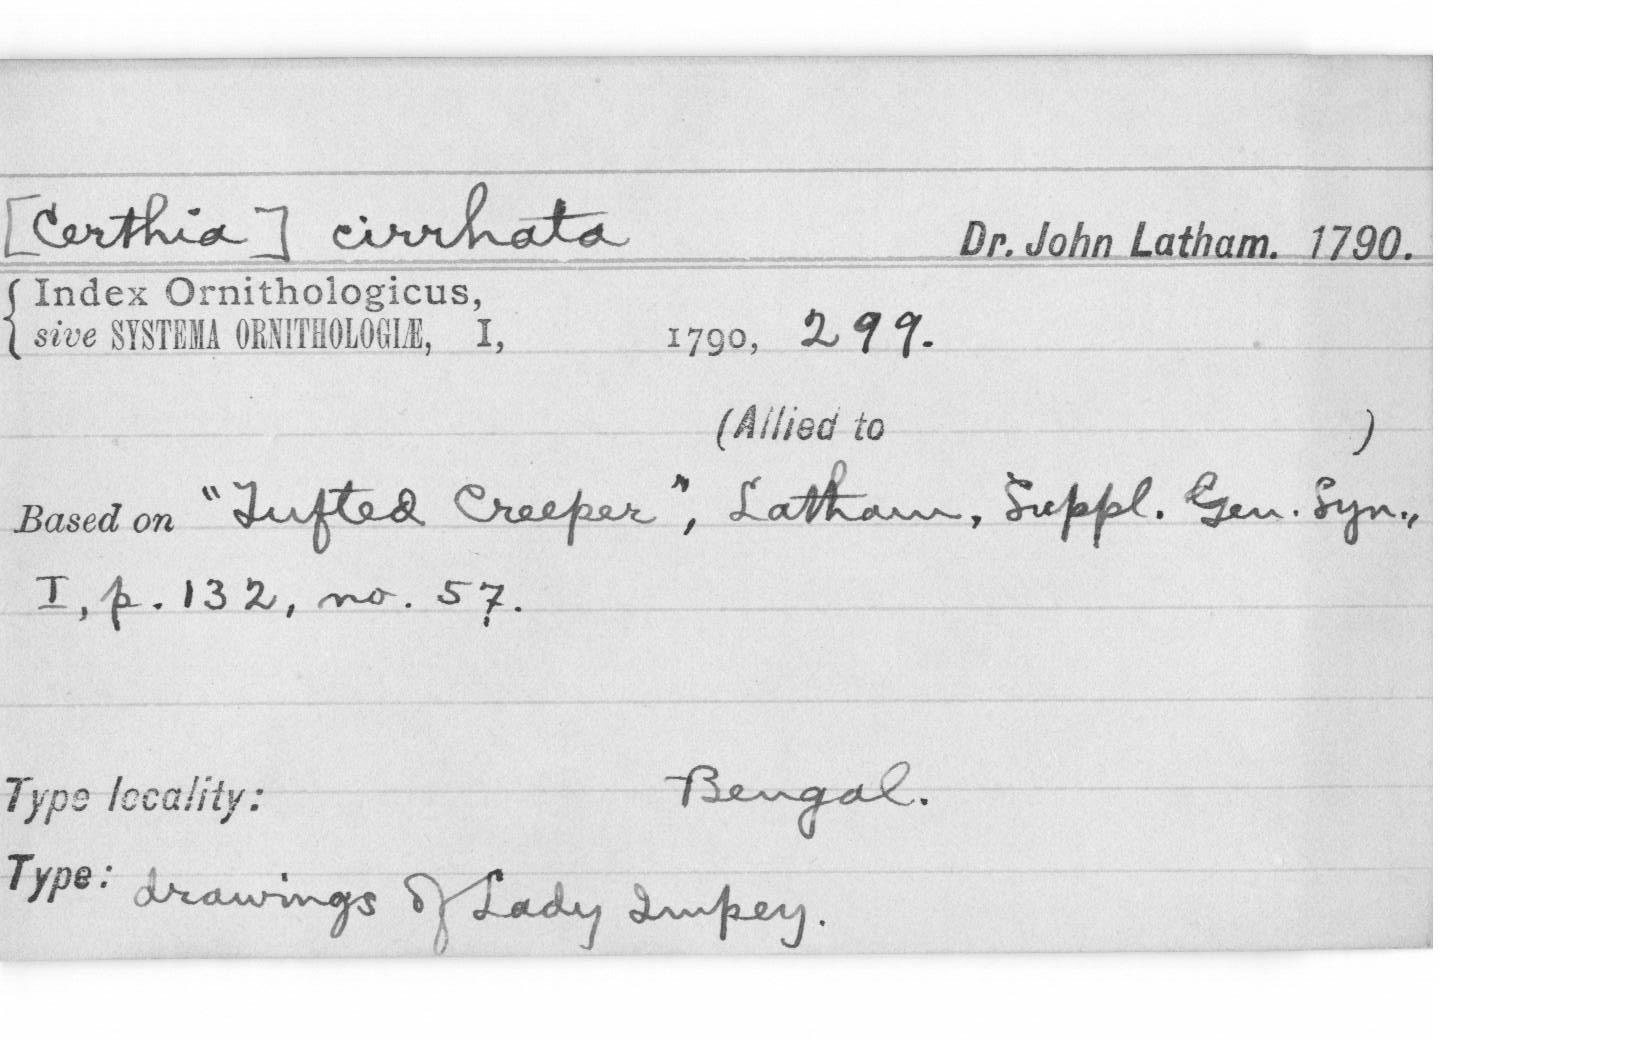 [Certhia] cirrhata Dr. John Latham. 1790.
{ Index Ornithologicus,
sive SYSTEMA ORNITHOLOGIÆ, I, 1790, 299.
(Allied to )
Based on "Tufted Creeper", Latham, Suppl. Gen. Syn.,
I, p. 132, no. 57.
Type locality: Bengal.
Type: drawings of Lady Impey.